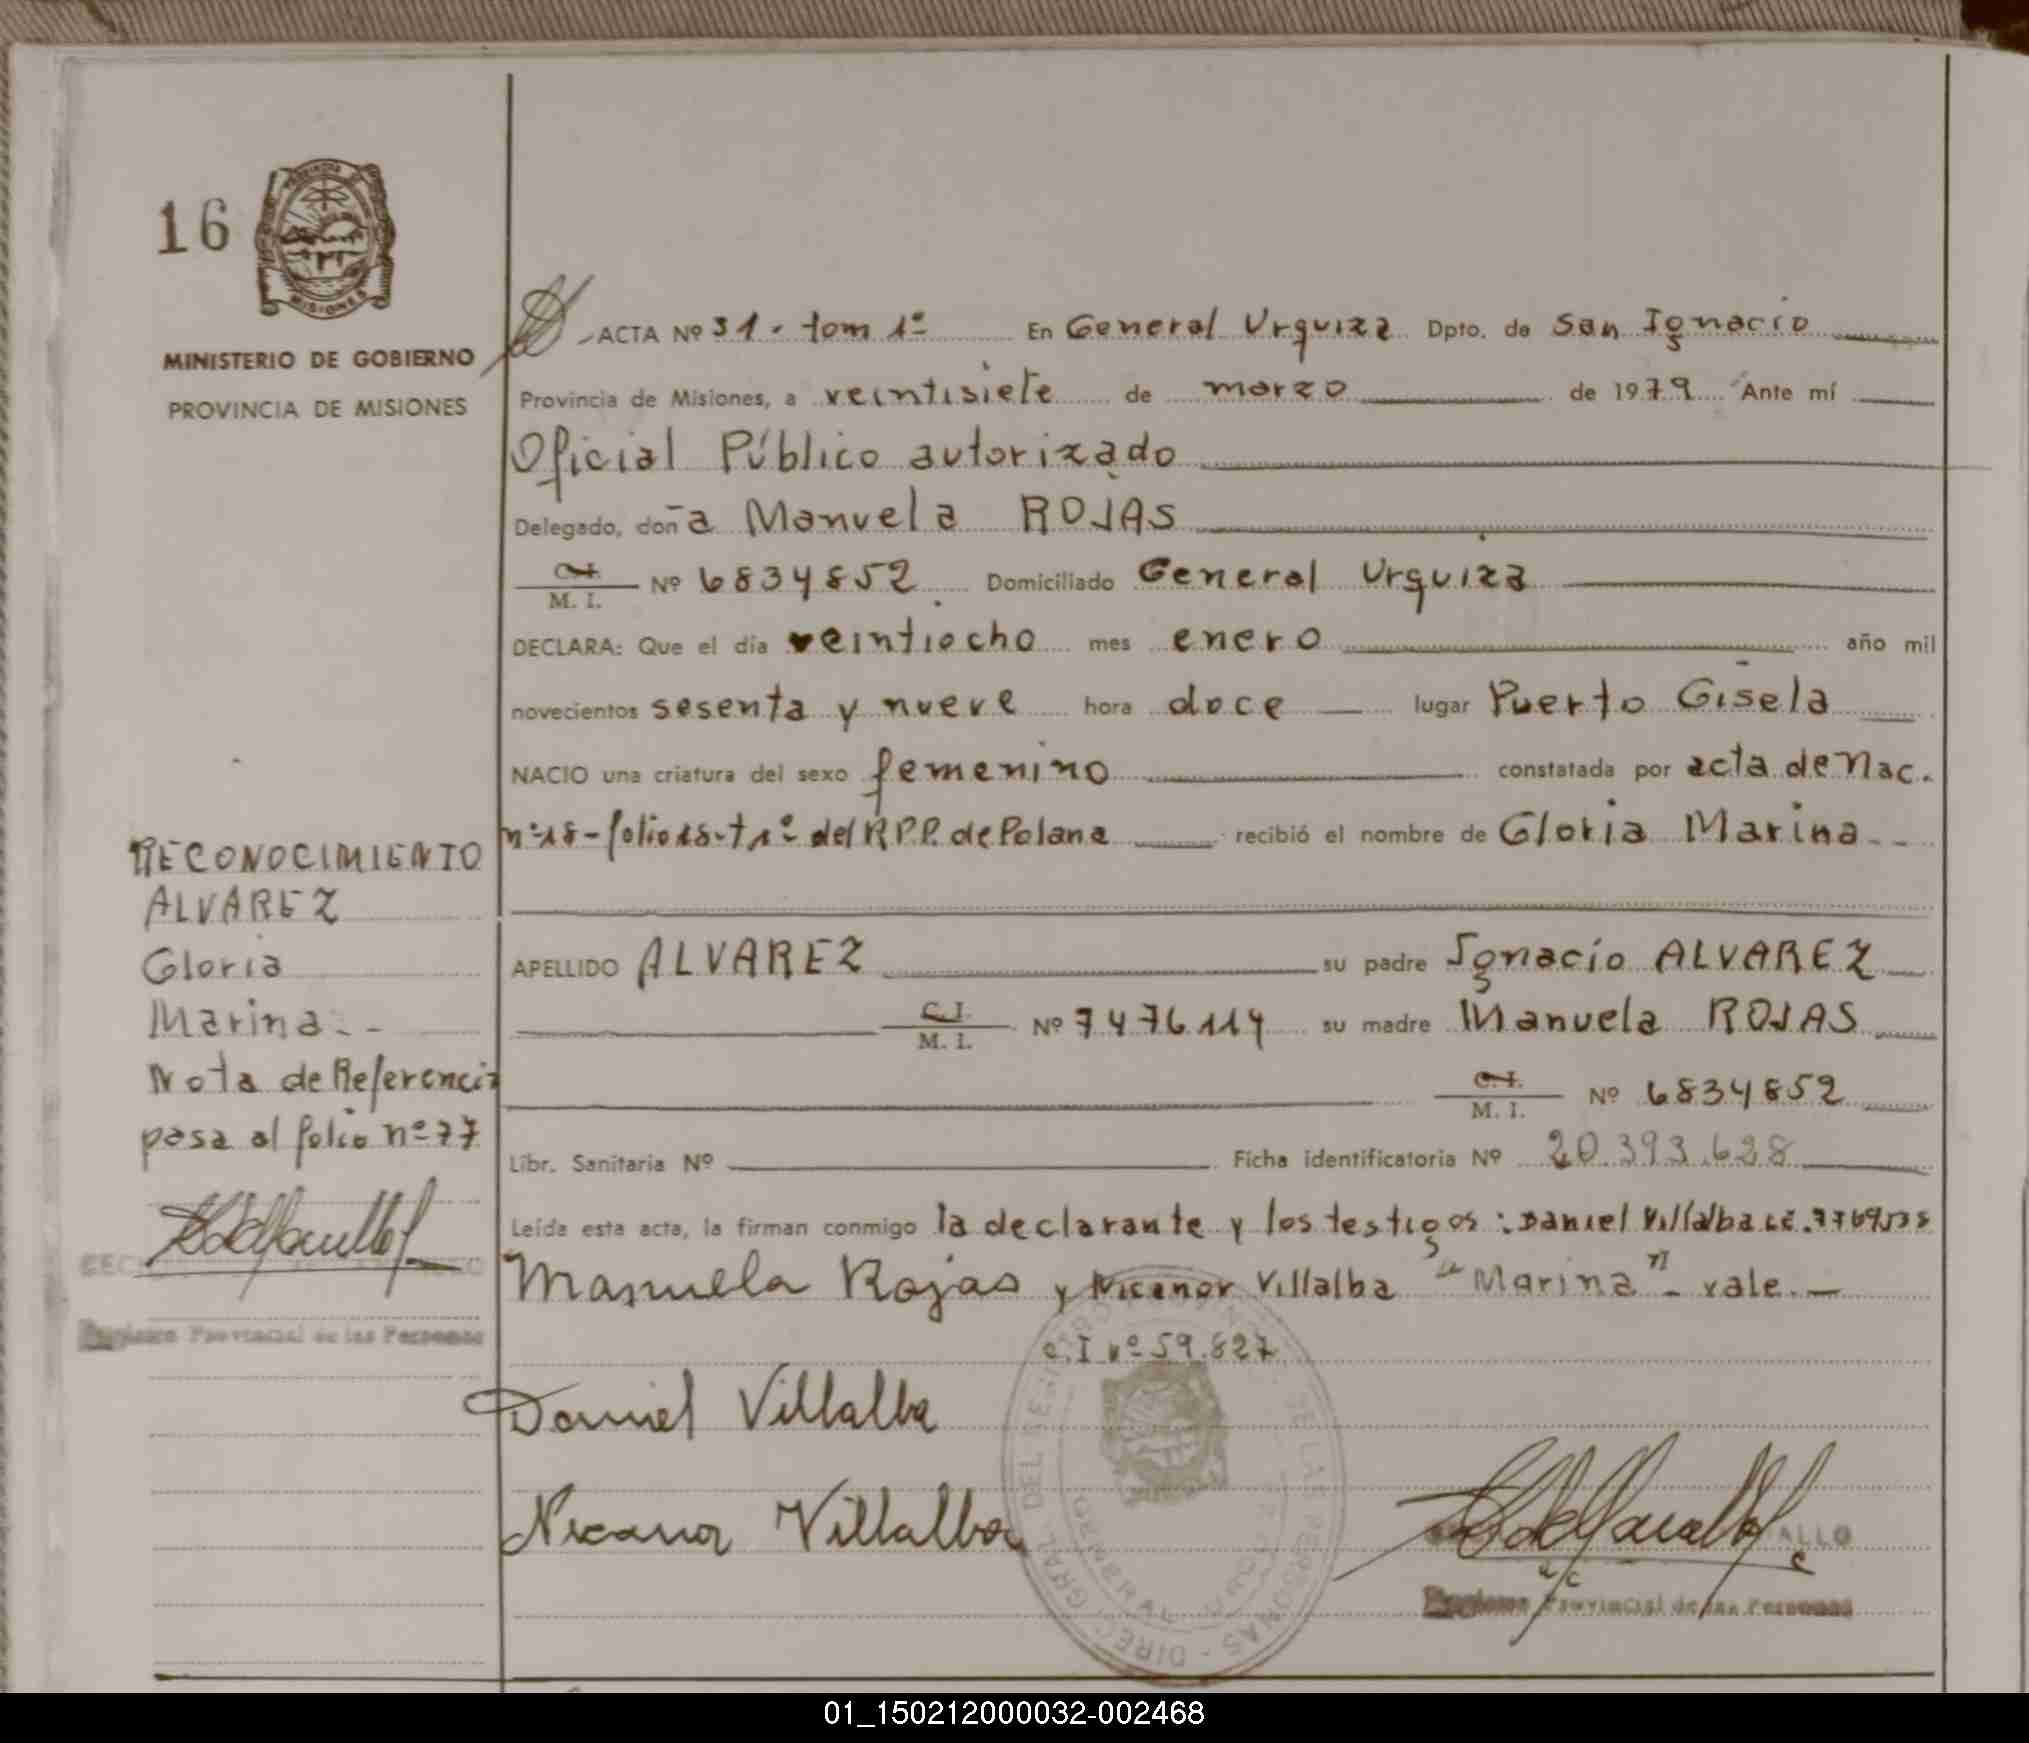 16
MINISTERIO DE GOBIERNO
PROVINCIA DE MISIONES
ACTA Nº 31 - tom 1º En General Urquiza Dpto. de San Ignacio
Provincia de Misiones, a veintisiete de marzo de 1979 Ante mí
Oficial Público autorizado
Delegado, doña Manuela ROJAS
C.I. M. I. Nº 6834852 Domiciliado General Urquiza
DECLARA: Que el día veintiocho mes enero año mil
novecientos sesenta y nueve hora doce lugar Puerto Gisela
NACIO una criatura del sexo femenino constatada por acta de Nac.
nº 18 - folio 18 - t 1º del R.P.P. de Polana recibió el nombre de Gloria Marina --
APELLIDO ALVAREZ su padre Ignacio ALVAREZ
C.I. M. I. Nº 7476114 su madre Manuela ROJAS
C.I. M. I. Nº 6834852
Libr. Sanitaria Nº Ficha identificatoria Nº 20.393.628
Leída esta acta, la firman conmigo la declarante y los testigos: Daniel Villalba
Manuela Rojas y Nicanor Villalba "Marina" - vale. -
C.I nº 59.827
Daniel Villalba
Nicanor Villalba
RECONOCIMIENTO
ALVAREZ
Gloria
Marina --
Nota de Referencia
pasa al folio nº 77
Provincial de las Personas
Provincial de las Personas
MISIONES
01_150212000032-002468